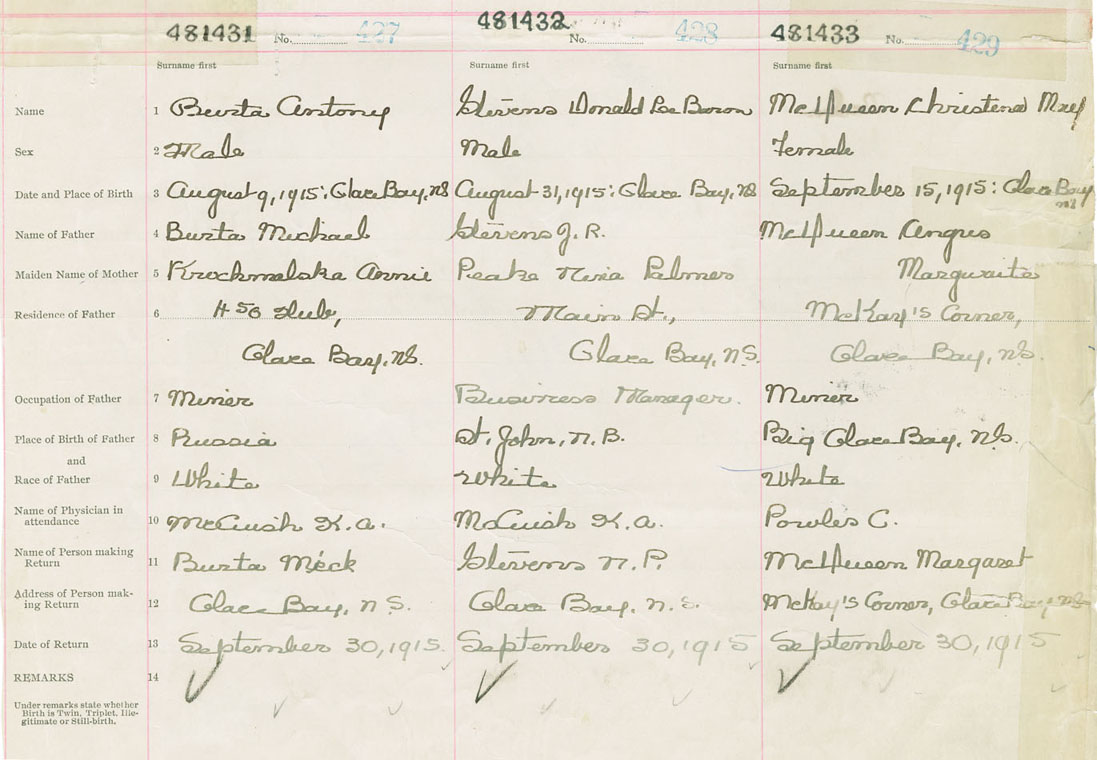 481431 No. 427 481432 No. 428 481433 No. 429
Surname first Surname first Surname first
Name 1 Burta Antony Stevens Donald Le Baron McQueen Christena May
Sex 2 Male Male Female
Date and Place of Birth 3 August 9, 1915: Glace Bay, NS August 31, 1915: Glace Bay, NS September 15, 1915: Glace Bay NS
Name of Father 4 Burta Michael Stevens J. R. McQueen Angus
Maiden Name of Mother 5 Annie Peake Palmer
Residence of Father 6 Main St., McKay's Corner,
Glace Bay, NS. Glace Bay, N.S. Glace Bay, NS.
Occupation of Father 7 Miner Business Manager. Miner
Place of Birth of Father 8 Russia St. John, N. B. Big Glace Bay, NS.
and
Race of Father 9 White White White
Name of Physician in
attendance 10 McCuish K. A. McCuish K. A. Powles C.
Name of Person making
Return 11 Burta Stevens N. P. McQueen Margaret
Address of Person mak-
ing Return 12 Glace Bay, N S. Glace Bay, N. S. McKay's Corner, Glace Bay, NS
Date of Return 13 September 30, 1915. September 30, 1915 September 30, 1915
REMARKS 14
Under remarks state whether
Birth is Twin, Triplet, Ille-
gitimate or Still-birth.